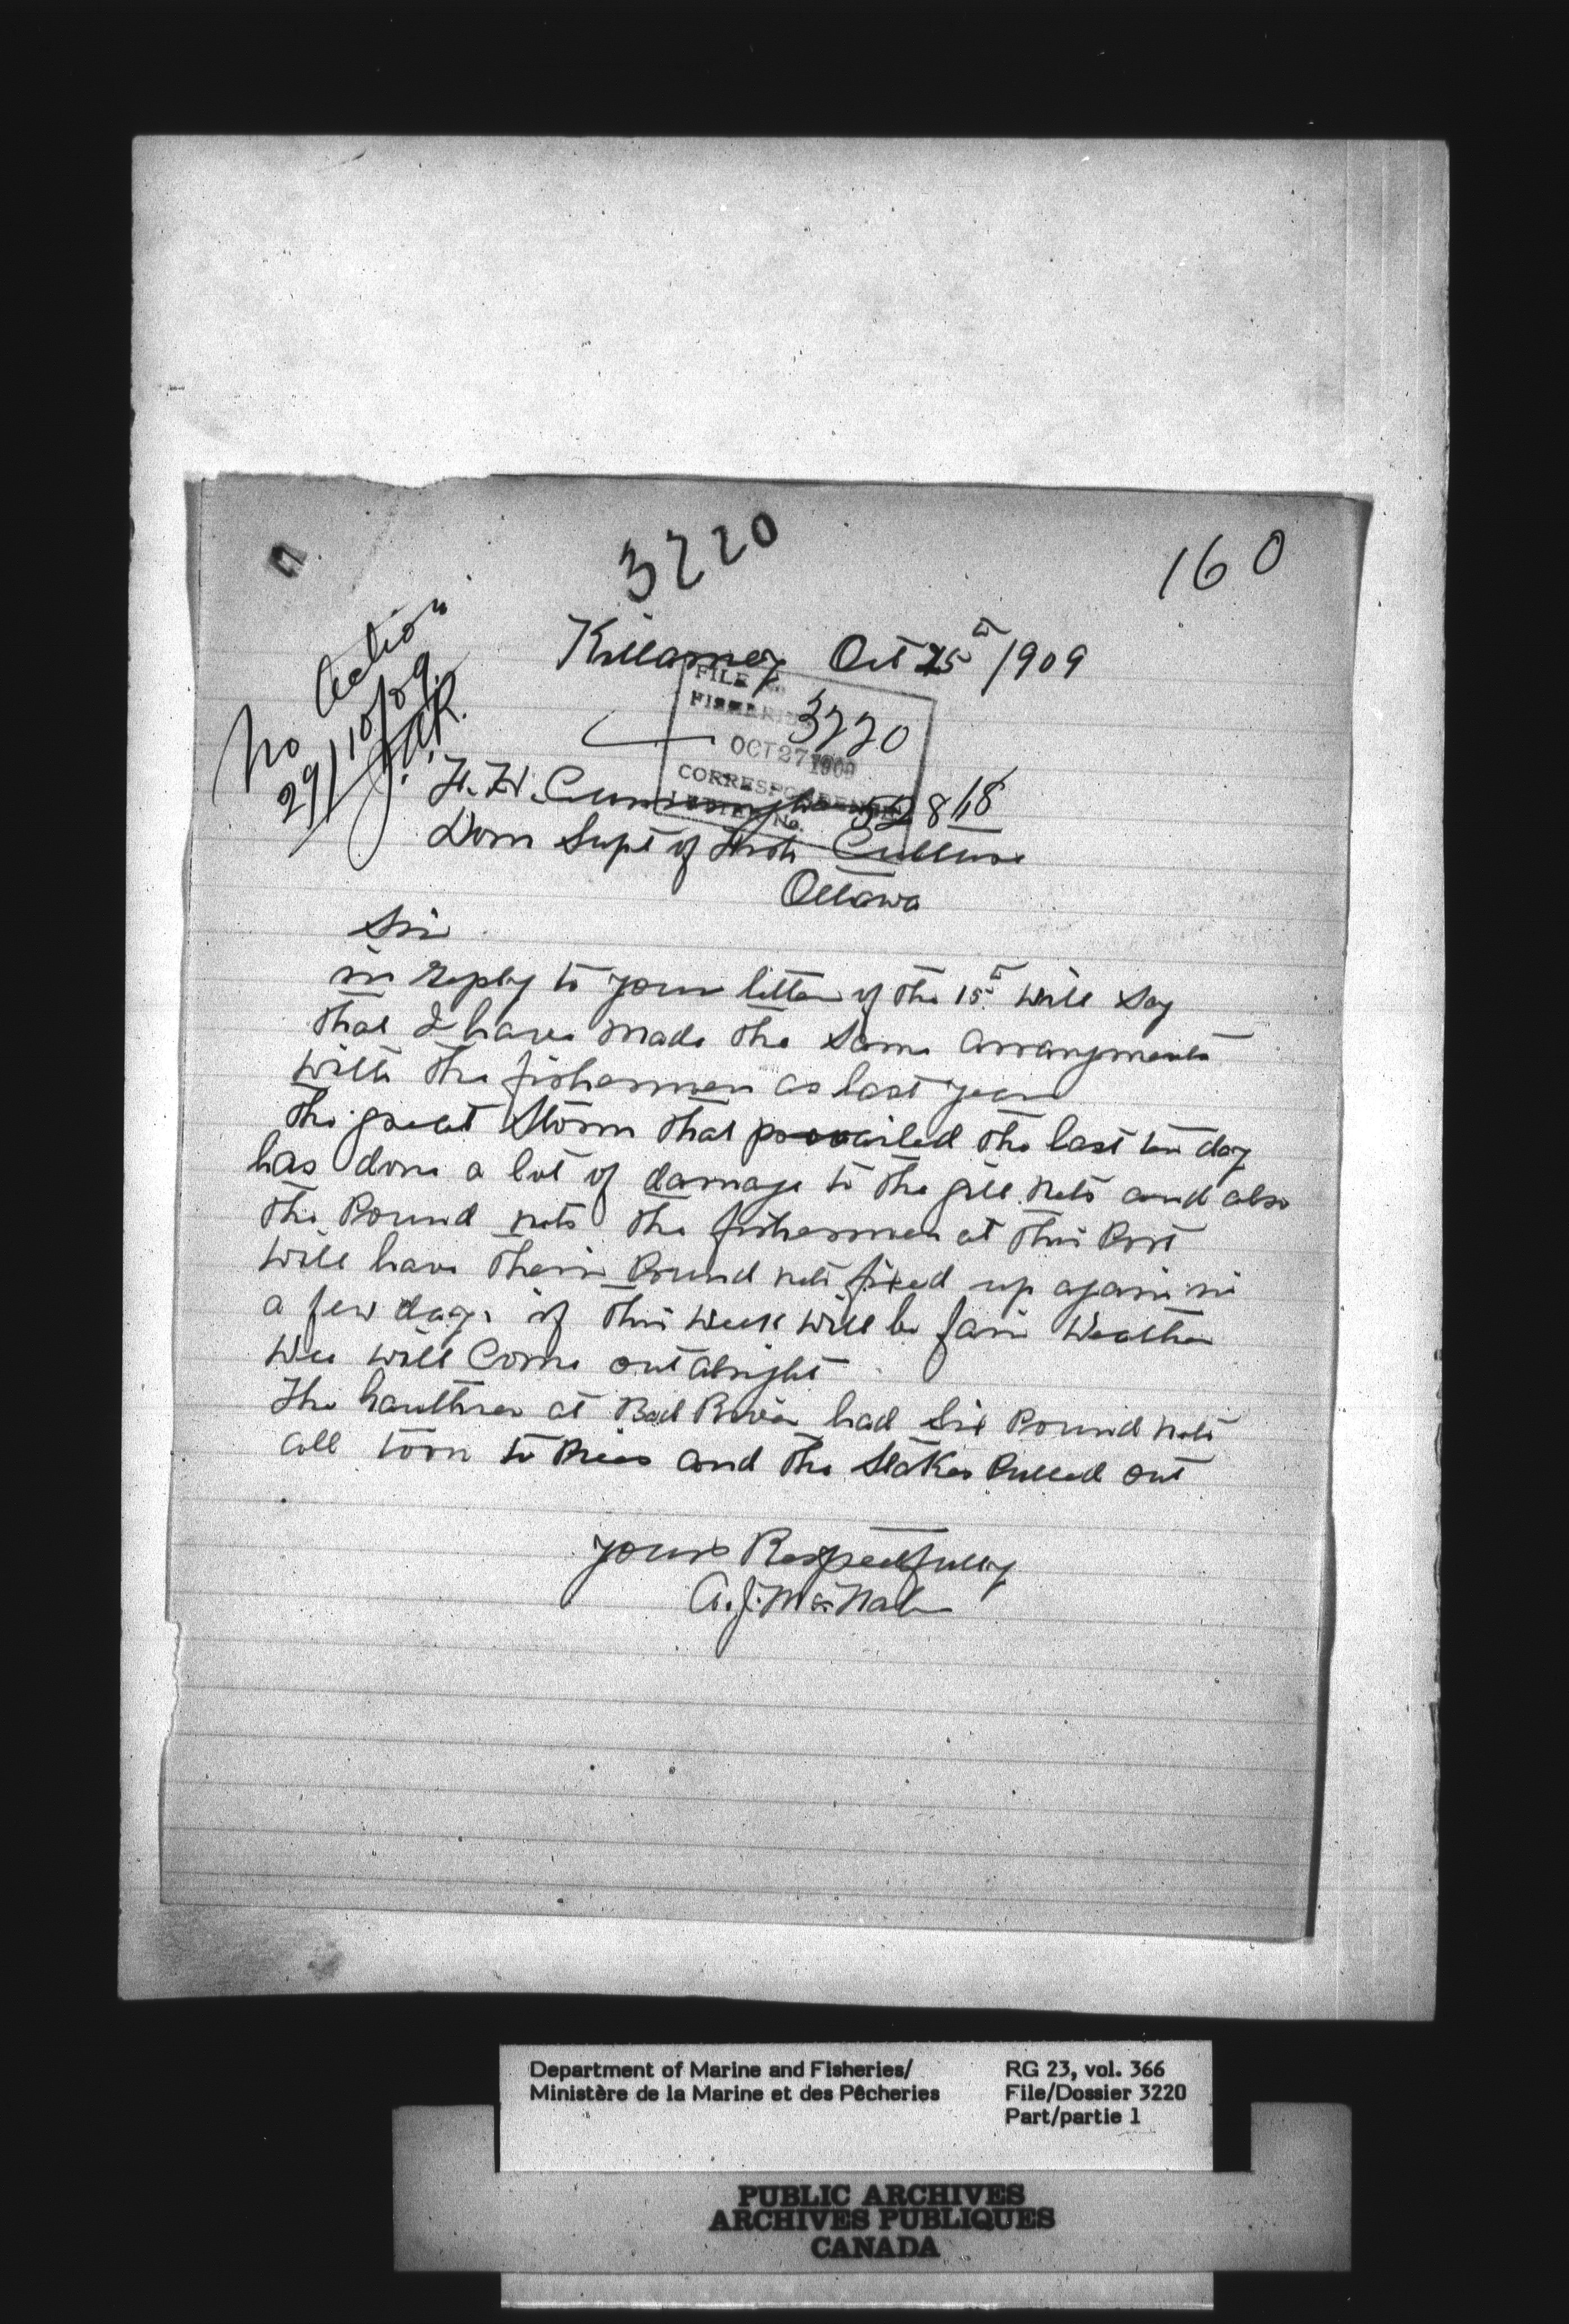 3220
160
No Action
29/10/09.
Killarney Oct 25th /1909
FILE No.
FISHERIES
3220
OCT 27 1909
CORRESPONDENCE
LETTER No.
52818
F. H. Cunningham
Dom Supt of Fish Culture
Ottawa
Sir
in reply to your letter of the 15th will say
that I have made the same arrangments
with the fishermen as last year
the great storm that prevailed the last ten day
has done a lot of damage to the gill nets and also
the Pound nets the fishermen at this Port
will have their Pound nets fixed up again in
a few days if this week will be fair weather
wee will come out alright
The at Bad River had Six Pound nets
all torn to Pices and the Stakes Pulled out
yours Respectfully
A. J. McNab
Department of Marine and Fisheries/
Ministère de la Marine et des Pêcheries
RG 23, vol. 366
File/Dossier 3220
Part/partie 1
PUBLIC ARCHIVES
ARCHIVES PUBLIQUES
CANADA